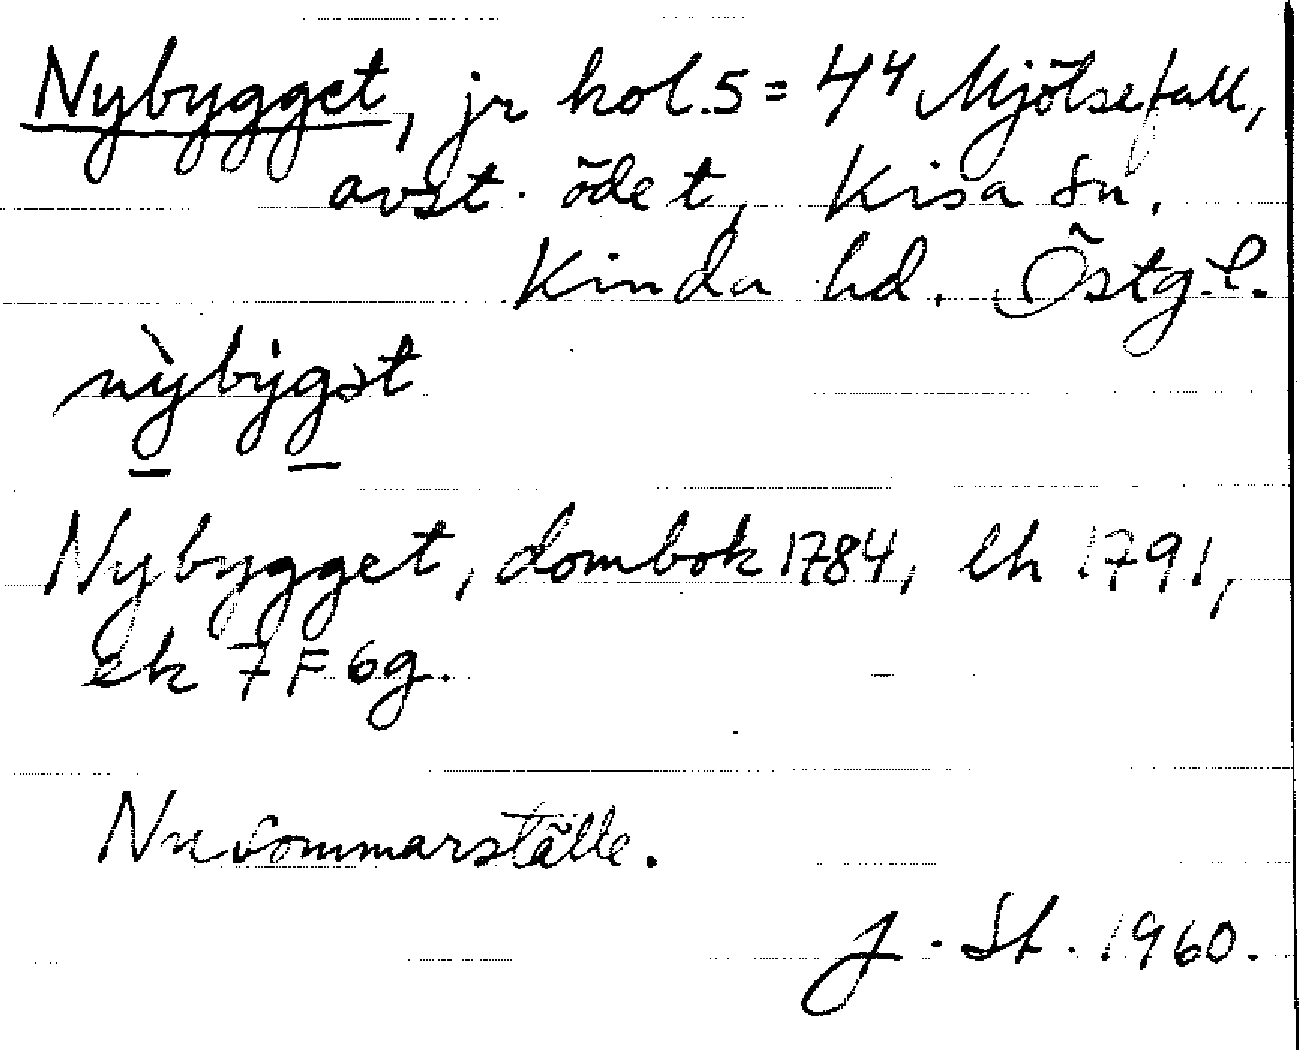 Nybygget, jr kol. 5 = 4⁴ Mjölsefall,
avst. ödet, Kisa sn,
Kinda hd. Östg. l.
nỳbýgət
Nybygget, dombok 1784, lh 1791,
ek 7F 6g.
Nu sommarställe.
J. St. 1960.